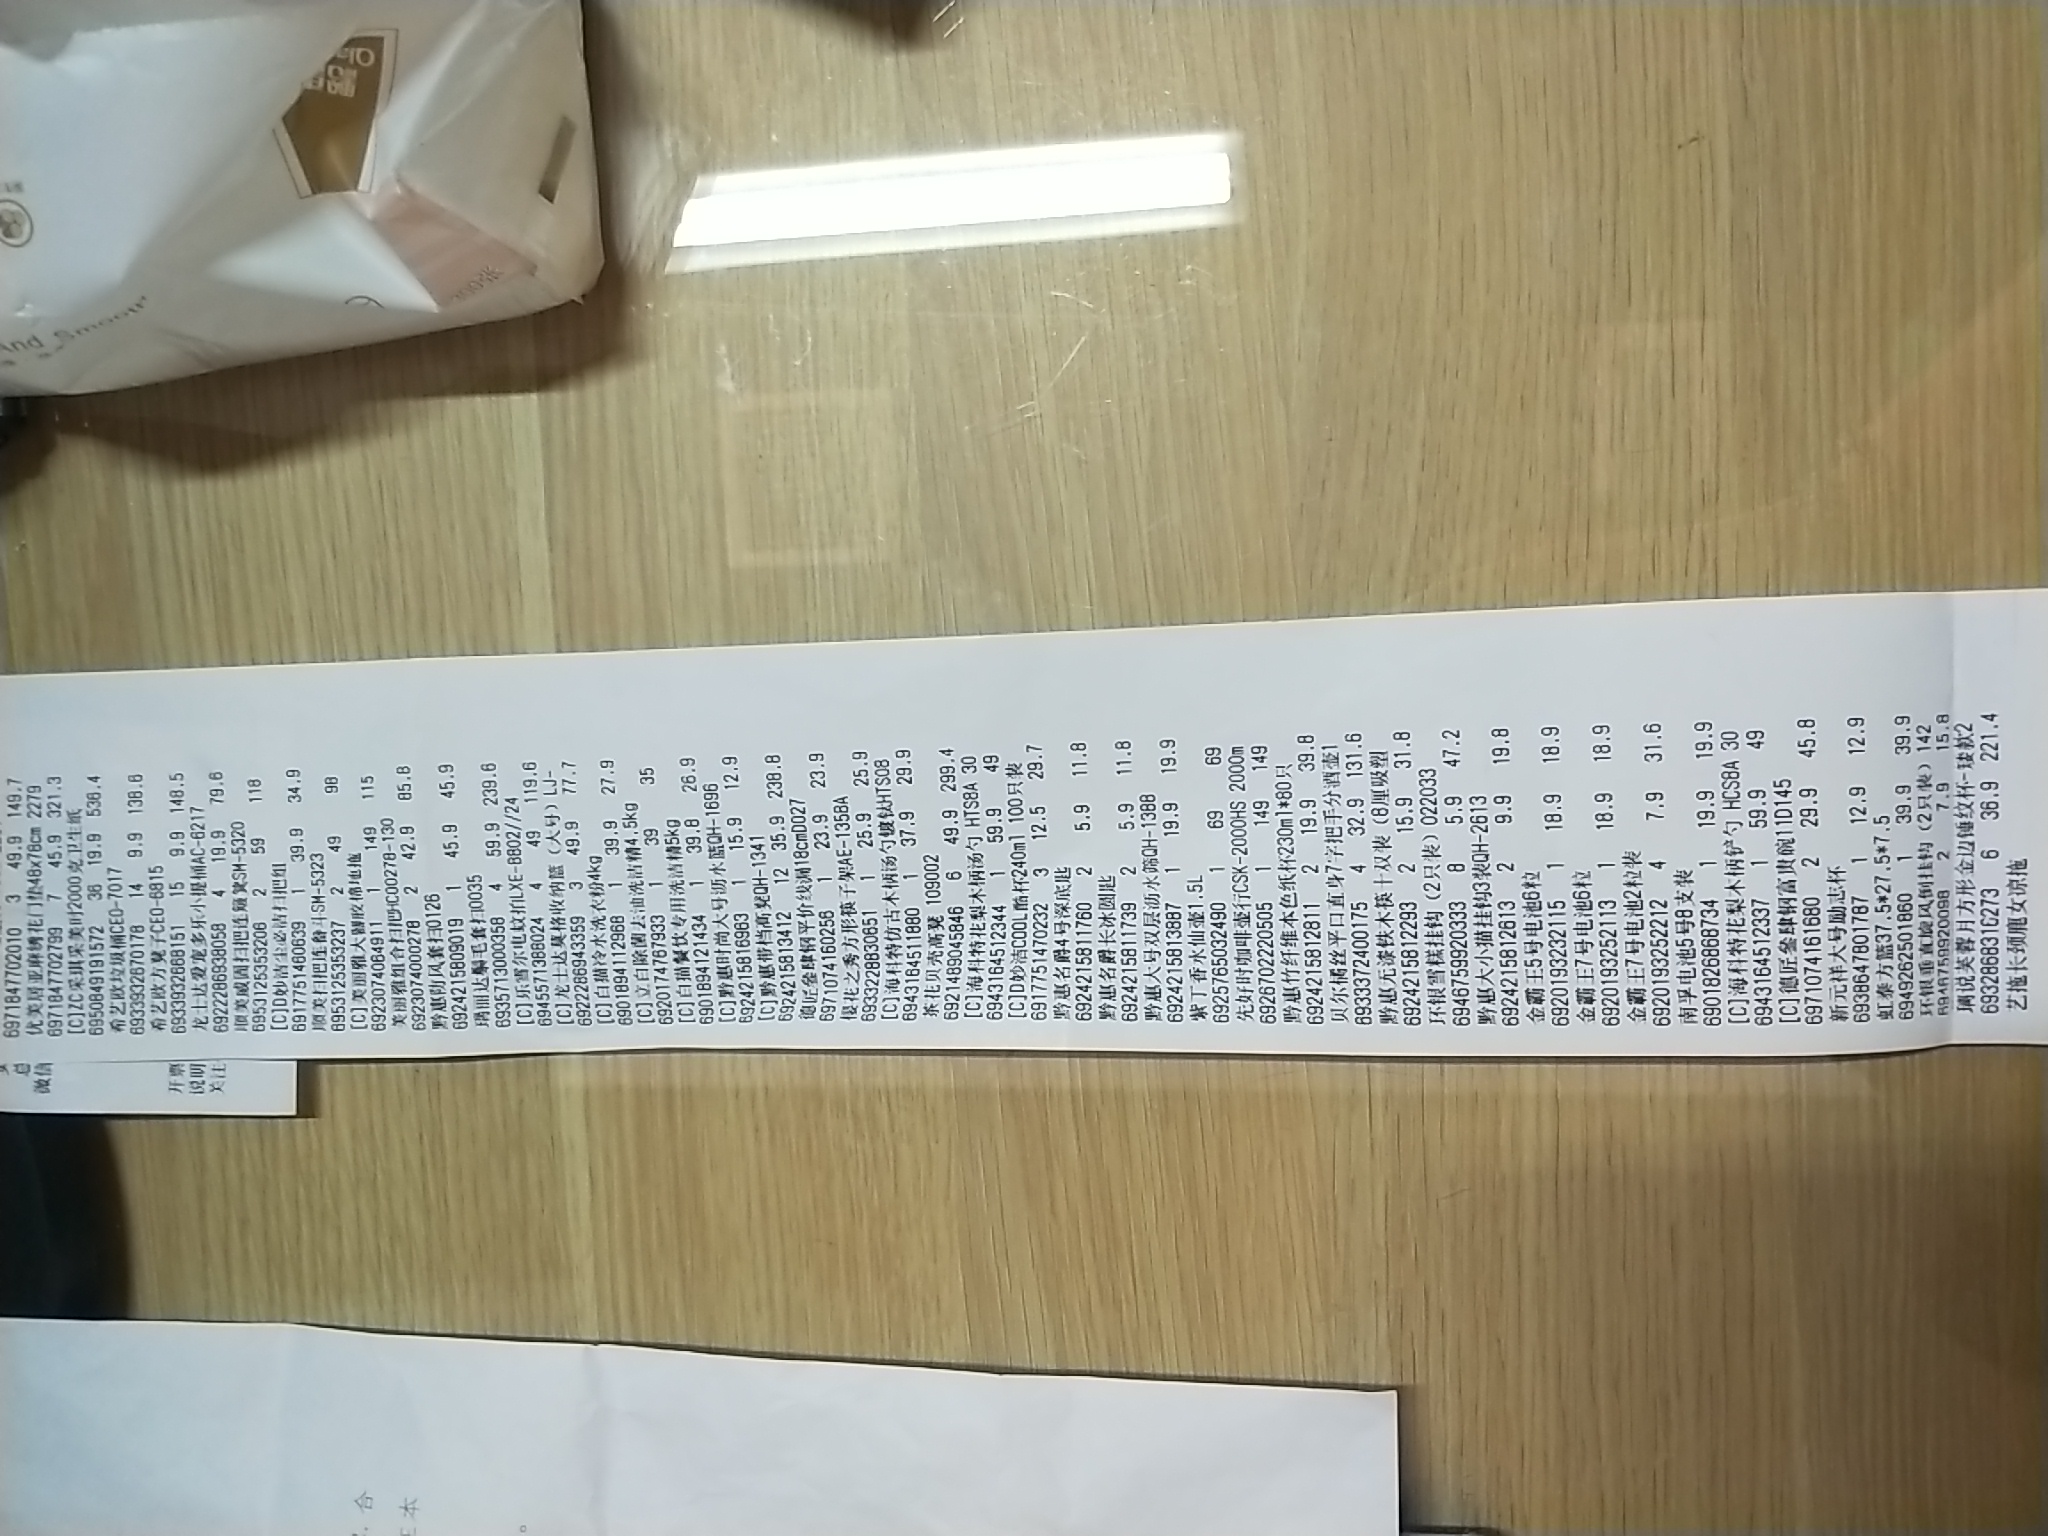 6971847702010 3 49.9 149.7
优美居亚麻绣花门垫48x78cm 2279
6971847702799 7 45.9 321.3
[C]ZC采琪采美时2000克卫生纸
6950849191572 36 19.9 536.4
希艺欧垃圾桶CEO-7017
6939932670178 14 9.9 138.6
希艺欧方凳子CEO-6815
6939932668151 15 9.9 148.5
龙士达爱宠多乐小提桶AC-B217
6922286938058 4 19.9 79.6
顺美威固扫把连簸箕SM-5320
6953125353206 2 59 118
[C]D妙洁尘必洁扫把组
6917751460639 1 39.9 34.9
顺美扫把连畚斗SM-5323
6953125353237 2 49 98
[C]美丽雅大嘴胶棉地拖
6922307404911 1 149 115
美丽雅组合扫把HC00278-130
6922307400278 2 42.9 85.8
黔惠防风套扫0126
6924215809019 1 45.9 45.9
瑀丽达鬃毛套扫0035
6935713000358 4 59.9 239.6
[C]乐雪尔电蚊拍LXE-B802//24
6945571388024 4 49 119.6
[C]龙士达莫格收纳篮(大号)LJ-
6922286943359 3 49.9 77.7
[C]白猫冷水洗衣粉4kg
6901894112968 1 39.9 27.9
[C]立白除菌去油洗洁精4.5kg
6920174767933 1 39 35
[C]白猫餐饮专用洗洁精5kg
6901894121434 1 39.8 26.9
[C]黔惠时尚大号沥水篮QH-1696
6924215816963 1 15.9 12.9
[C]黔惠带档高凳QH-1341
6924215813412 12 35.9 238.8
德匠叁肆钢平价线漏18cmD027
6971074160256 1 23.9 23.9
樱花之秀方形筷子架AE-135BA
6933228830851 1 25.9 25.9
[C]海科特仿古木柄汤勺镀钛HTS08
6943164511880 1 37.9 29.9
茶花贝壳高凳 109002
6921489045846 6 49.9 299.4
[C]海科特花梨木柄汤勺 HTS8A 30
6943164512344 1 59.9 49
[C]D妙洁COOL酷杯240ml 100只装
6917751470232 3 12.5 29.7
黔惠名爵4号深底匙
6924215811760 2 5.9 11.8
黔惠名爵长冰圆匙
6924215811739 2 5.9 11.8
黔惠大号双层沥水筛QH-1388
6924215813887 1 19.9 19.9
紫丁香水仙壶1.5L
6925765032490 1 69 69
先好时咖啡壶行CSK-2000HS 2000m
6926702220505 1 149 149
黔惠竹纤维本色纸杯230ml*80只
6924215812811 2 19.9 39.8
贝尔橘丝平口直身7字把手分酒壶1
6933372400175 4 32.9 131.6
黔惠无漆铁木筷十双装(8厘吸塑
6924215812293 2 15.9 31.8
环根雪糕挂钩(2只装)022033
6946759920333 8 5.9 47.2
黔惠大小猫挂钩3装QH-2613
6924215812613 2 9.9 19.8
金霸王5号电池6粒
6920193232115 1 18.9 18.9
金霸王7号电池6粒
6920193252113 1 18.9 18.9
金霸王7号电池2粒装
6920193252212 4 7.9 31.6
南孚电池5号8支装
6901826868734 1 19.9 19.9
[C]海科特花梨木柄铲勺 HCS8A 30
6943164512337 1 59.9 49
[C]德匠叁肆钢富贵碗11D145
6971074161680 2 29.9 45.8
新元祥大号励志杯
6938647801787 1 12.9 12.9
虹泰方篮37.5*27.5*7.5
6949262501860 1 39.9 39.9
环根垂直旋风倒挂钩(2只装)142
6946759920098 2 7.9 15.8
璃说芙蓉月方形金边锤纹杯-矮款2
693286831G273 6 36.9 221.4
艺拖长颈魔女凉拖
总
微信
开票
说明
关注
And Smooth
合
本